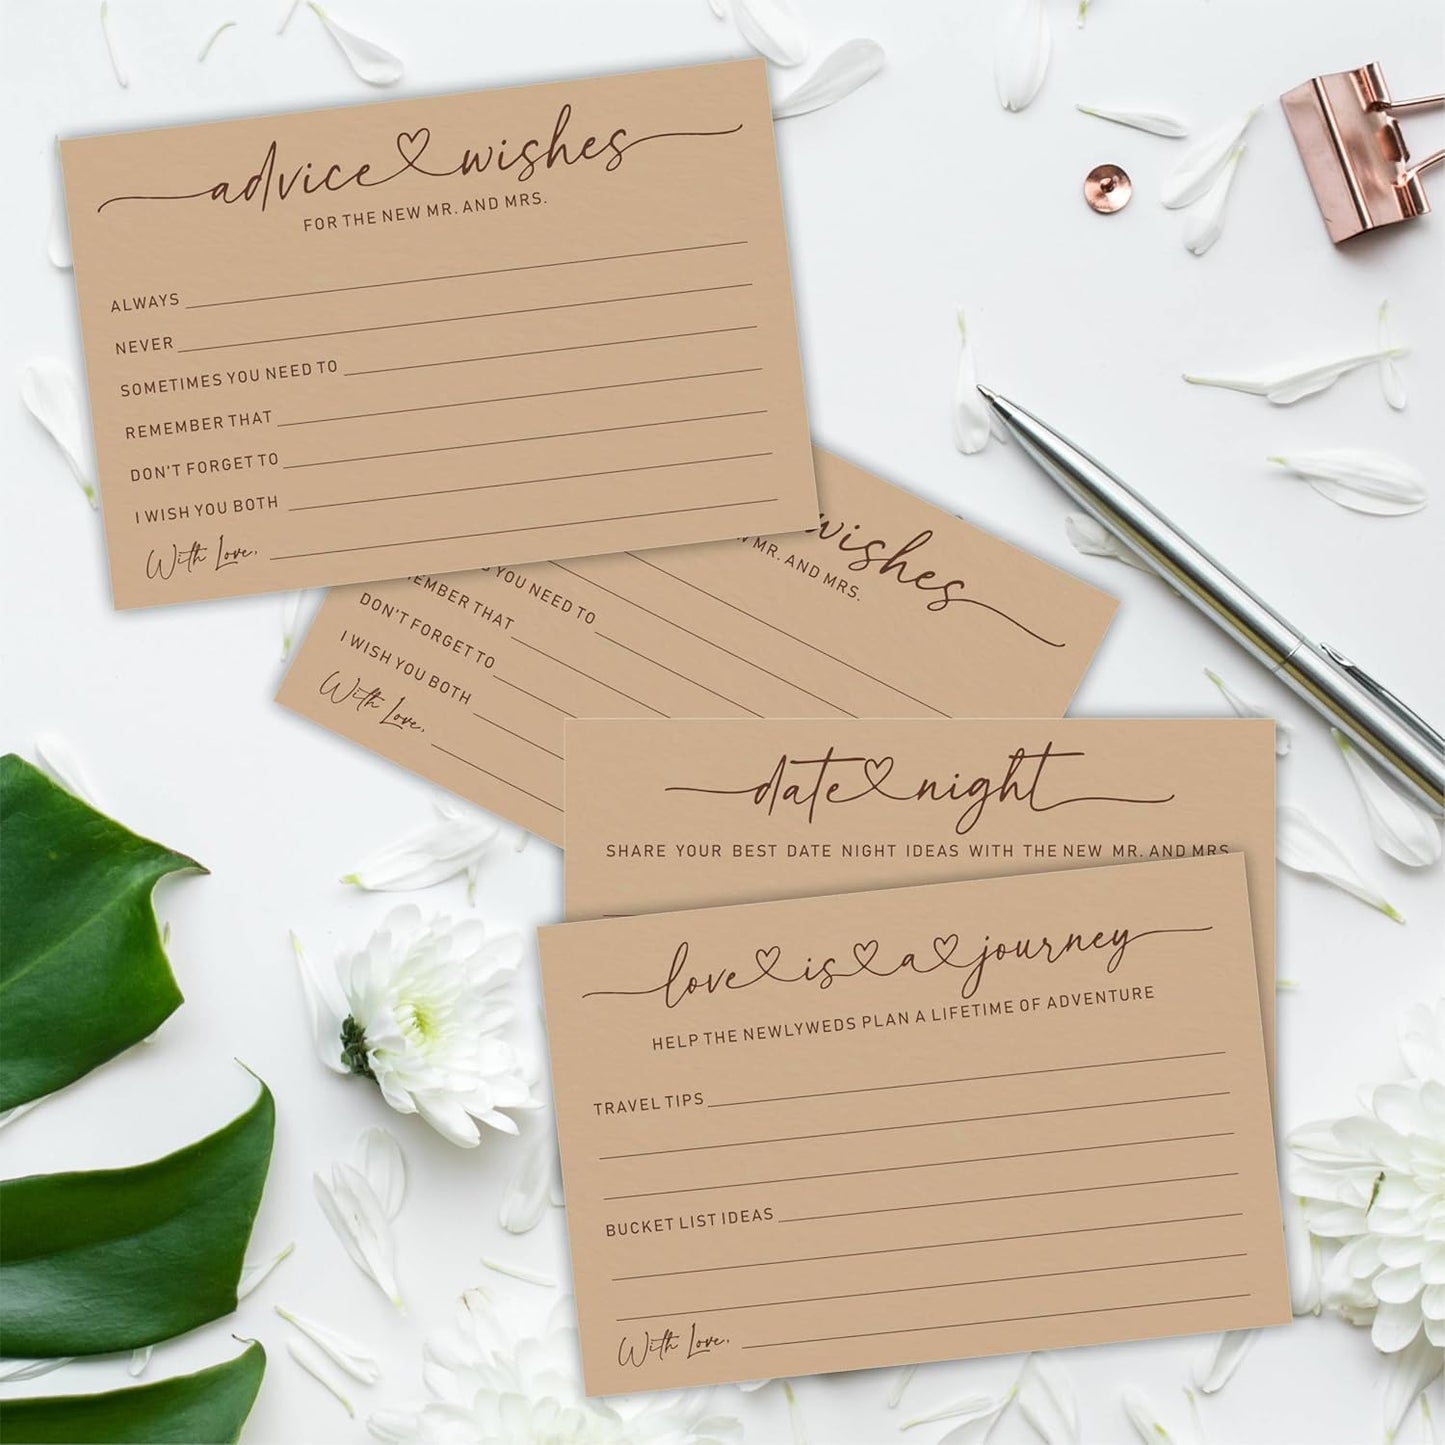 advice wishes
FOR THE NEW MR. AND MRS.
ALWAYS
NEVER
SOMETIMES YOU NEED TO
REMEMBER THAT
DON'T FORGET TO
I WISH YOU BOTH
With Love,
wishes
MR. AND MRS.
YOU NEED TO
THAT
DON'T FORGET TO
I WISH YOU BOTH
With Love,
date night
SHARE YOUR BEST DATE NIGHT IDEAS WITH THE NEW MR. AND MRS
love is a journey
HELP THE NEWLYWEDS PLAN A LIFETIME OF ADVENTURE
TRAVEL TIPS
BUCKET LIST IDEAS
With Love,